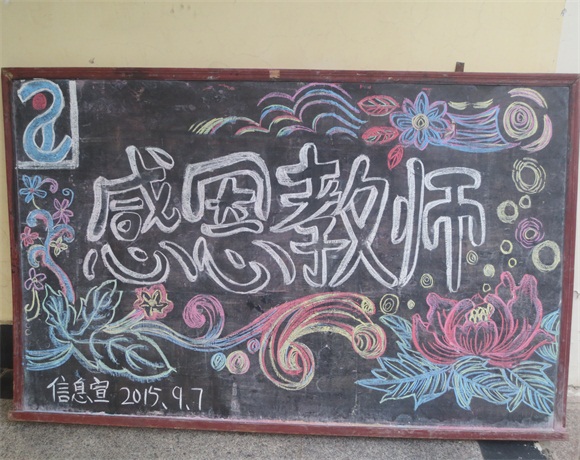 感恩教师
信息宣 2015、9、7